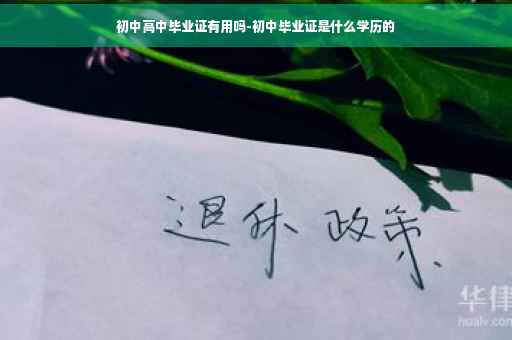 初中高中毕业证有用吗-初中毕业证是什么学历的
退休 政策
华律
hualv.com